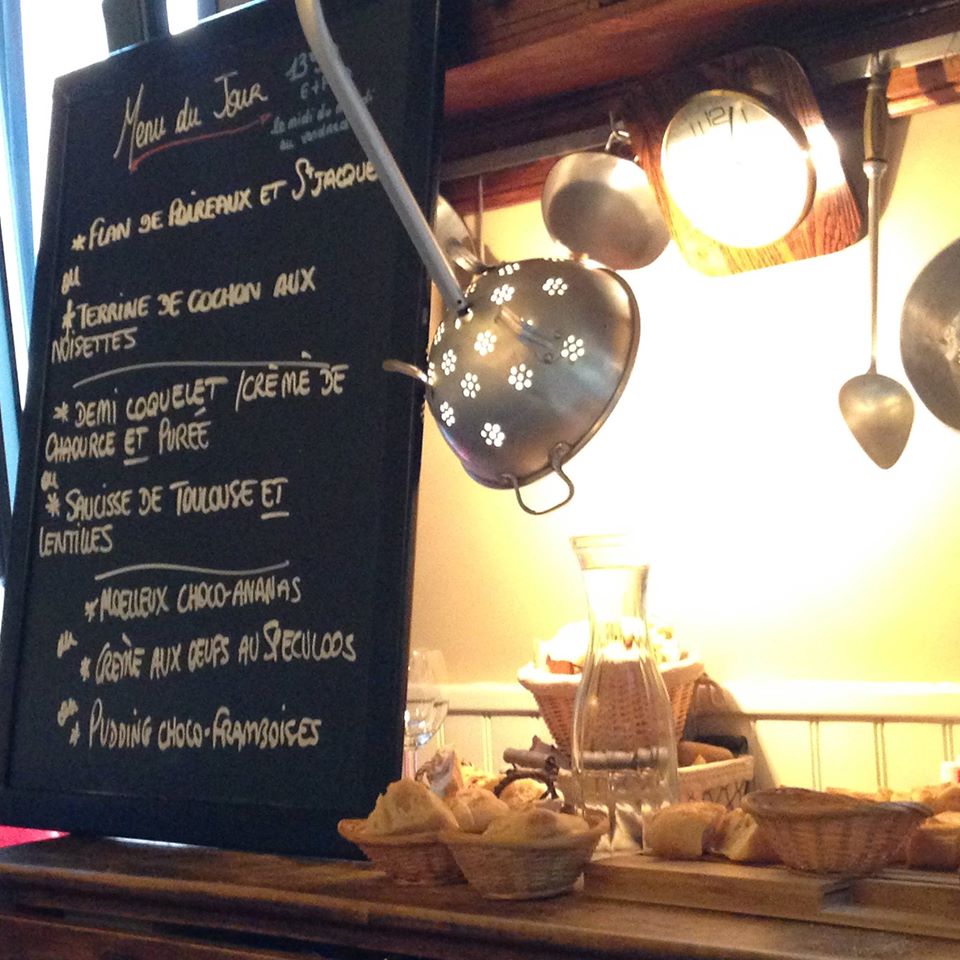 Menu du Jour
le midi du
au vendredi
* FLAN DE POIREAUX ET St JACQUE
ou
* TERRINE DE COCHON AUX
NOISETTES
* DEMI COQUELET / CRÈME DE
CHAOURCE ET PURÉE
ou
* SAUCISSE DE TOULOUSE ET
LENTILLES
* MOELLEUX CHOCO-ANANAS
ou
* CRÈME AUX OEUFS AU SPECULOOS
ou
* PUDDING CHOCO-FRAMBOISES